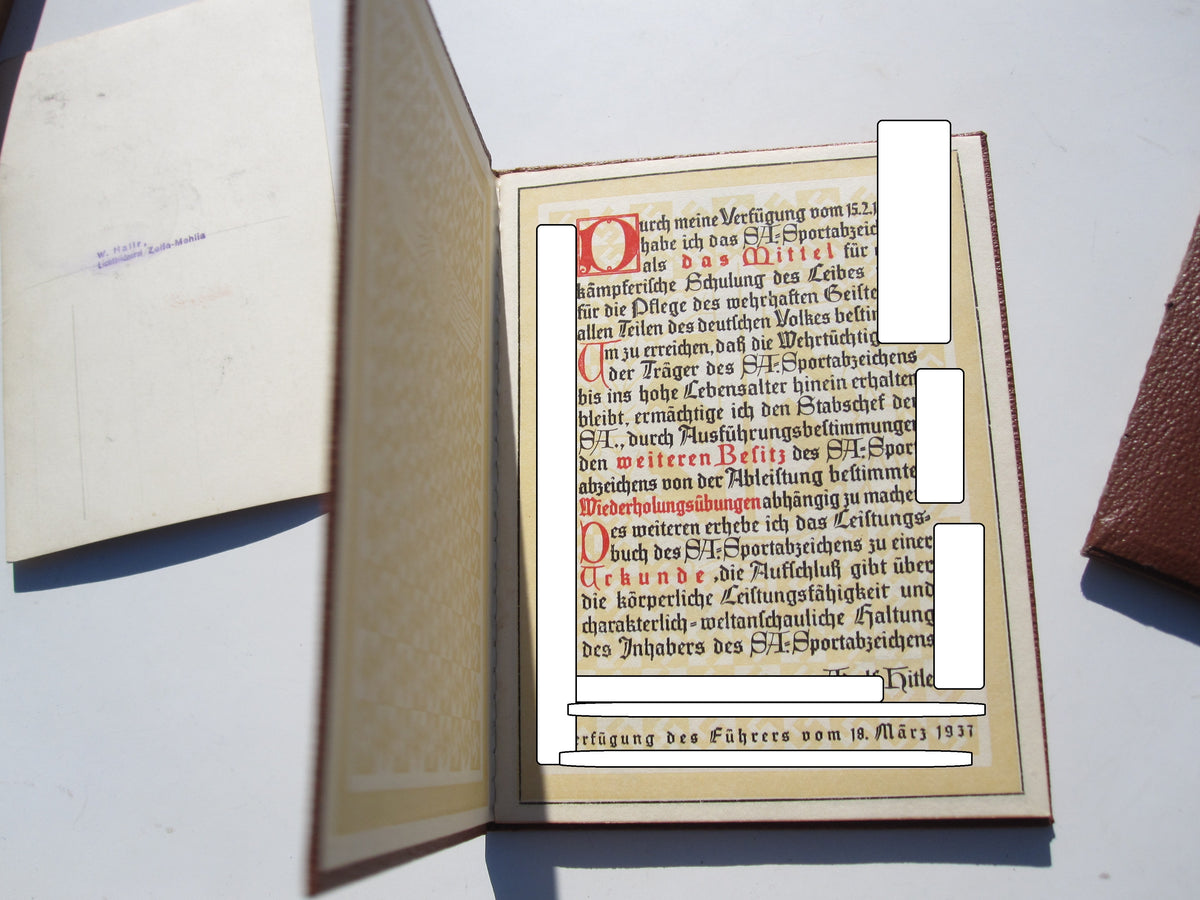 W. Nailr,
Zella-Mehlis
Durch meine Verfügung vom 15.2.1
habe ich das SA-Sportabzeic
als das Mittel für
kämpferische Schulung des Leibes
für die Pflege des wehrhaften Geiste
allen Teilen des deutschen Volkes bestim
Um zu erreichen, daß die Wehrtüchtig
der Träger des SA-Sportabzeichens
bis ins hohe Lebensalter hinein erhalten
bleibt, ermächtige ich den Stabschef der
SA., durch Ausführungsbestimmungen
den weiteren Besitz des SA-Sport
abzeichens von der Ableistung bestimmte
Wiederholungsübungen abhängig zu mache
Des weiteren erhebe ich das Leistungs-
buch des SA-Sportabzeichens zu einer
Urkunde, die Aufschluß gibt über
die körperliche Leistungsfähigkeit und
charakterlich-weltanschauliche Haltung
des Inhabers des SA-Sportabzeichens
Adolf Hitle
erfügung des Führers vom 18. März 1937